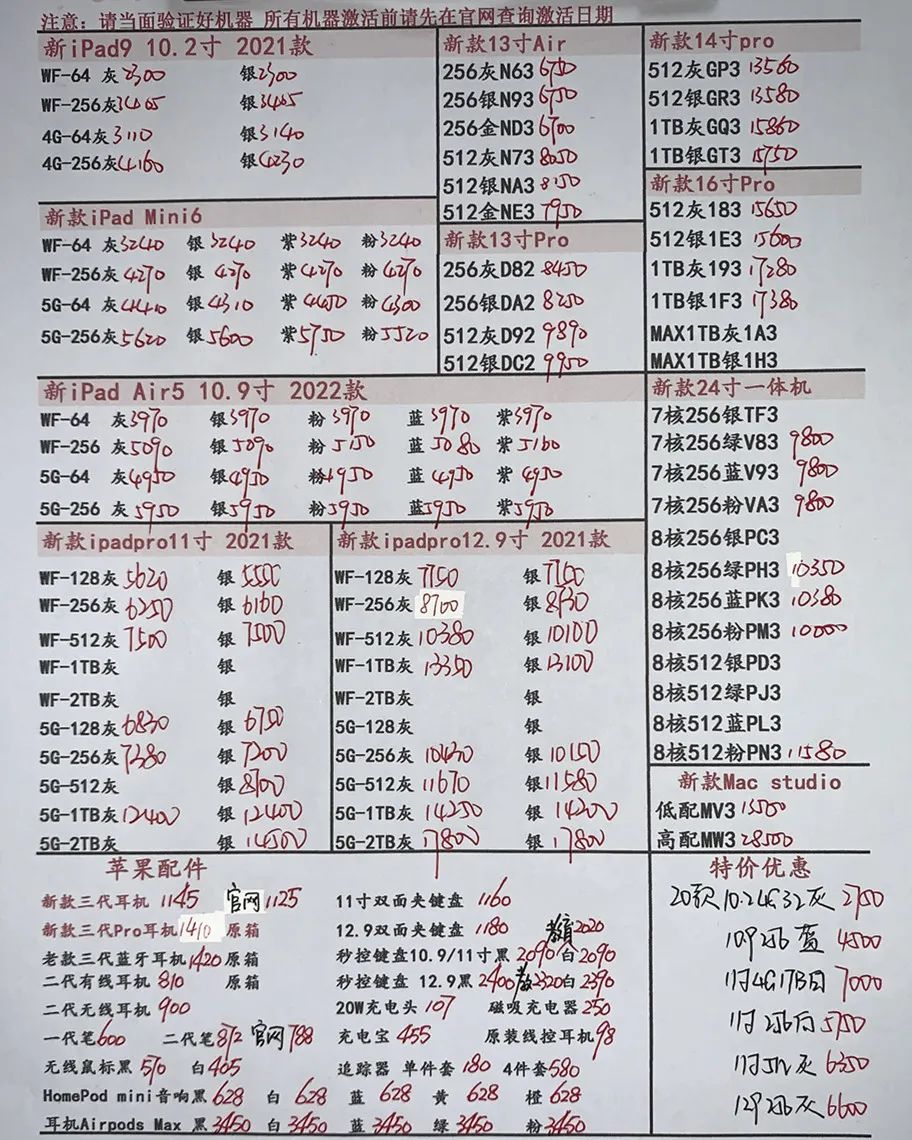 注意：请当面验证好机器 所有机器激活前请先在官网查询激活日期
新iPad9 10.2寸 2021款
WF-64 灰2300 银2300
WF-256灰3405 银3405
4G-64灰3110 银3140
4G-256灰4160 银4230
新款iPad Mini6
WF-64 灰3240 银3240 紫3240 粉3240
WF-256灰4270 银4270 紫4270 粉4270
5G-64 灰4410 银4310 紫4450 粉4300
5G-256灰5620 银5600 紫5750 粉5520
新款13寸Air
256灰N63 6750
256银N93 6750
256金ND3 6700
512灰N73 8050
512银NA3 8150
512金NE3 7950
新款13寸Pro
256灰D82 8450
256银DA2 8250
512灰D92 9890
512银DC2 9950
新款14寸pro
512灰GP3 13560
512银GR3 13580
1TB灰GQ3 15860
1TB银GT3 15750
新款16寸Pro
512灰183 15650
512银1E3 15600
1TB灰193 17280
1TB银1F3 17380
MAX1TB灰1A3
MAX1TB银1H3
新iPad Air5 10.9寸 2022款
WF-64 灰3970 银3970 粉3970 蓝3970 紫3970
WF-256 灰5090 银5090 粉5150 蓝5080 紫5160
5G-64 灰4950 银4950 粉4950 蓝4950 紫4950
5G-256 灰5950 银5950 粉5950 蓝5950 紫5950
新款ipadpro11寸 2021款
WF-128灰5620 银5550
WF-256灰6250 银6160
WF-512灰7500 银7500
WF-1TB灰 银
WF-2TB灰 银
5G-128灰6830 银6750
5G-256灰7380 银7300
5G-512灰 银8700
5G-1TB灰12400 银12400
5G-2TB灰 银14500
新款ipadpro12.9寸 2021款
WF-128灰7150 银7160
WF-256灰8700 银8730
WF-512灰10380 银10100
WF-1TB灰13350 银13100
WF-2TB灰 银
5G-128灰 银
5G-256灰10430 银10150
5G-512灰11670 银11580
5G-1TB灰14250 银14200
5G-2TB灰17800 银17800
新款24寸一体机
7核256银TF3
7核256绿V83 9800
7核256蓝V93 9800
7核256粉VA3 9800
8核256银PC3
8核256绿PH3 10350
8核256蓝PK3 10380
8核256粉PM3 10000
8核512银PD3
8核512绿PJ3
8核512蓝PL3
8核512粉PN3 11580
新款Mac studio
低配MV3 13500
高配MW3 28500
苹果配件
新款三代耳机 1145 官网1125
新款三代Pro耳机1410 原箱
老款三代蓝牙耳机1420原箱
二代有线耳机 810 原箱
二代无线耳机 900
一代笔600 二代笔872 官网788
无线鼠标黑 510 白405
HomePod mini音响黑 628 白 628 蓝 628 黄 628 橙 628
耳机Airpods Max 黑3450 白3450 蓝3450 绿3450 粉3450
11寸双面夹键盘 1160
12.9双面夹键盘 1180 教育2020
秒控键盘10.9/11寸黑 2090 白2090
秒控键盘 12.9黑2400 教2320白2390
20W充电头 107 磁吸充电器 250
充电宝 455 原装线控耳机98
追踪器 单件套 180 4件套580
特价优惠
20款10.2 4G 32灰 2750
10.9 256 蓝 4500
11寸4G 1TB 7000
11寸 256 5750
11寸 512 灰 6350
12.9 256 灰 6600